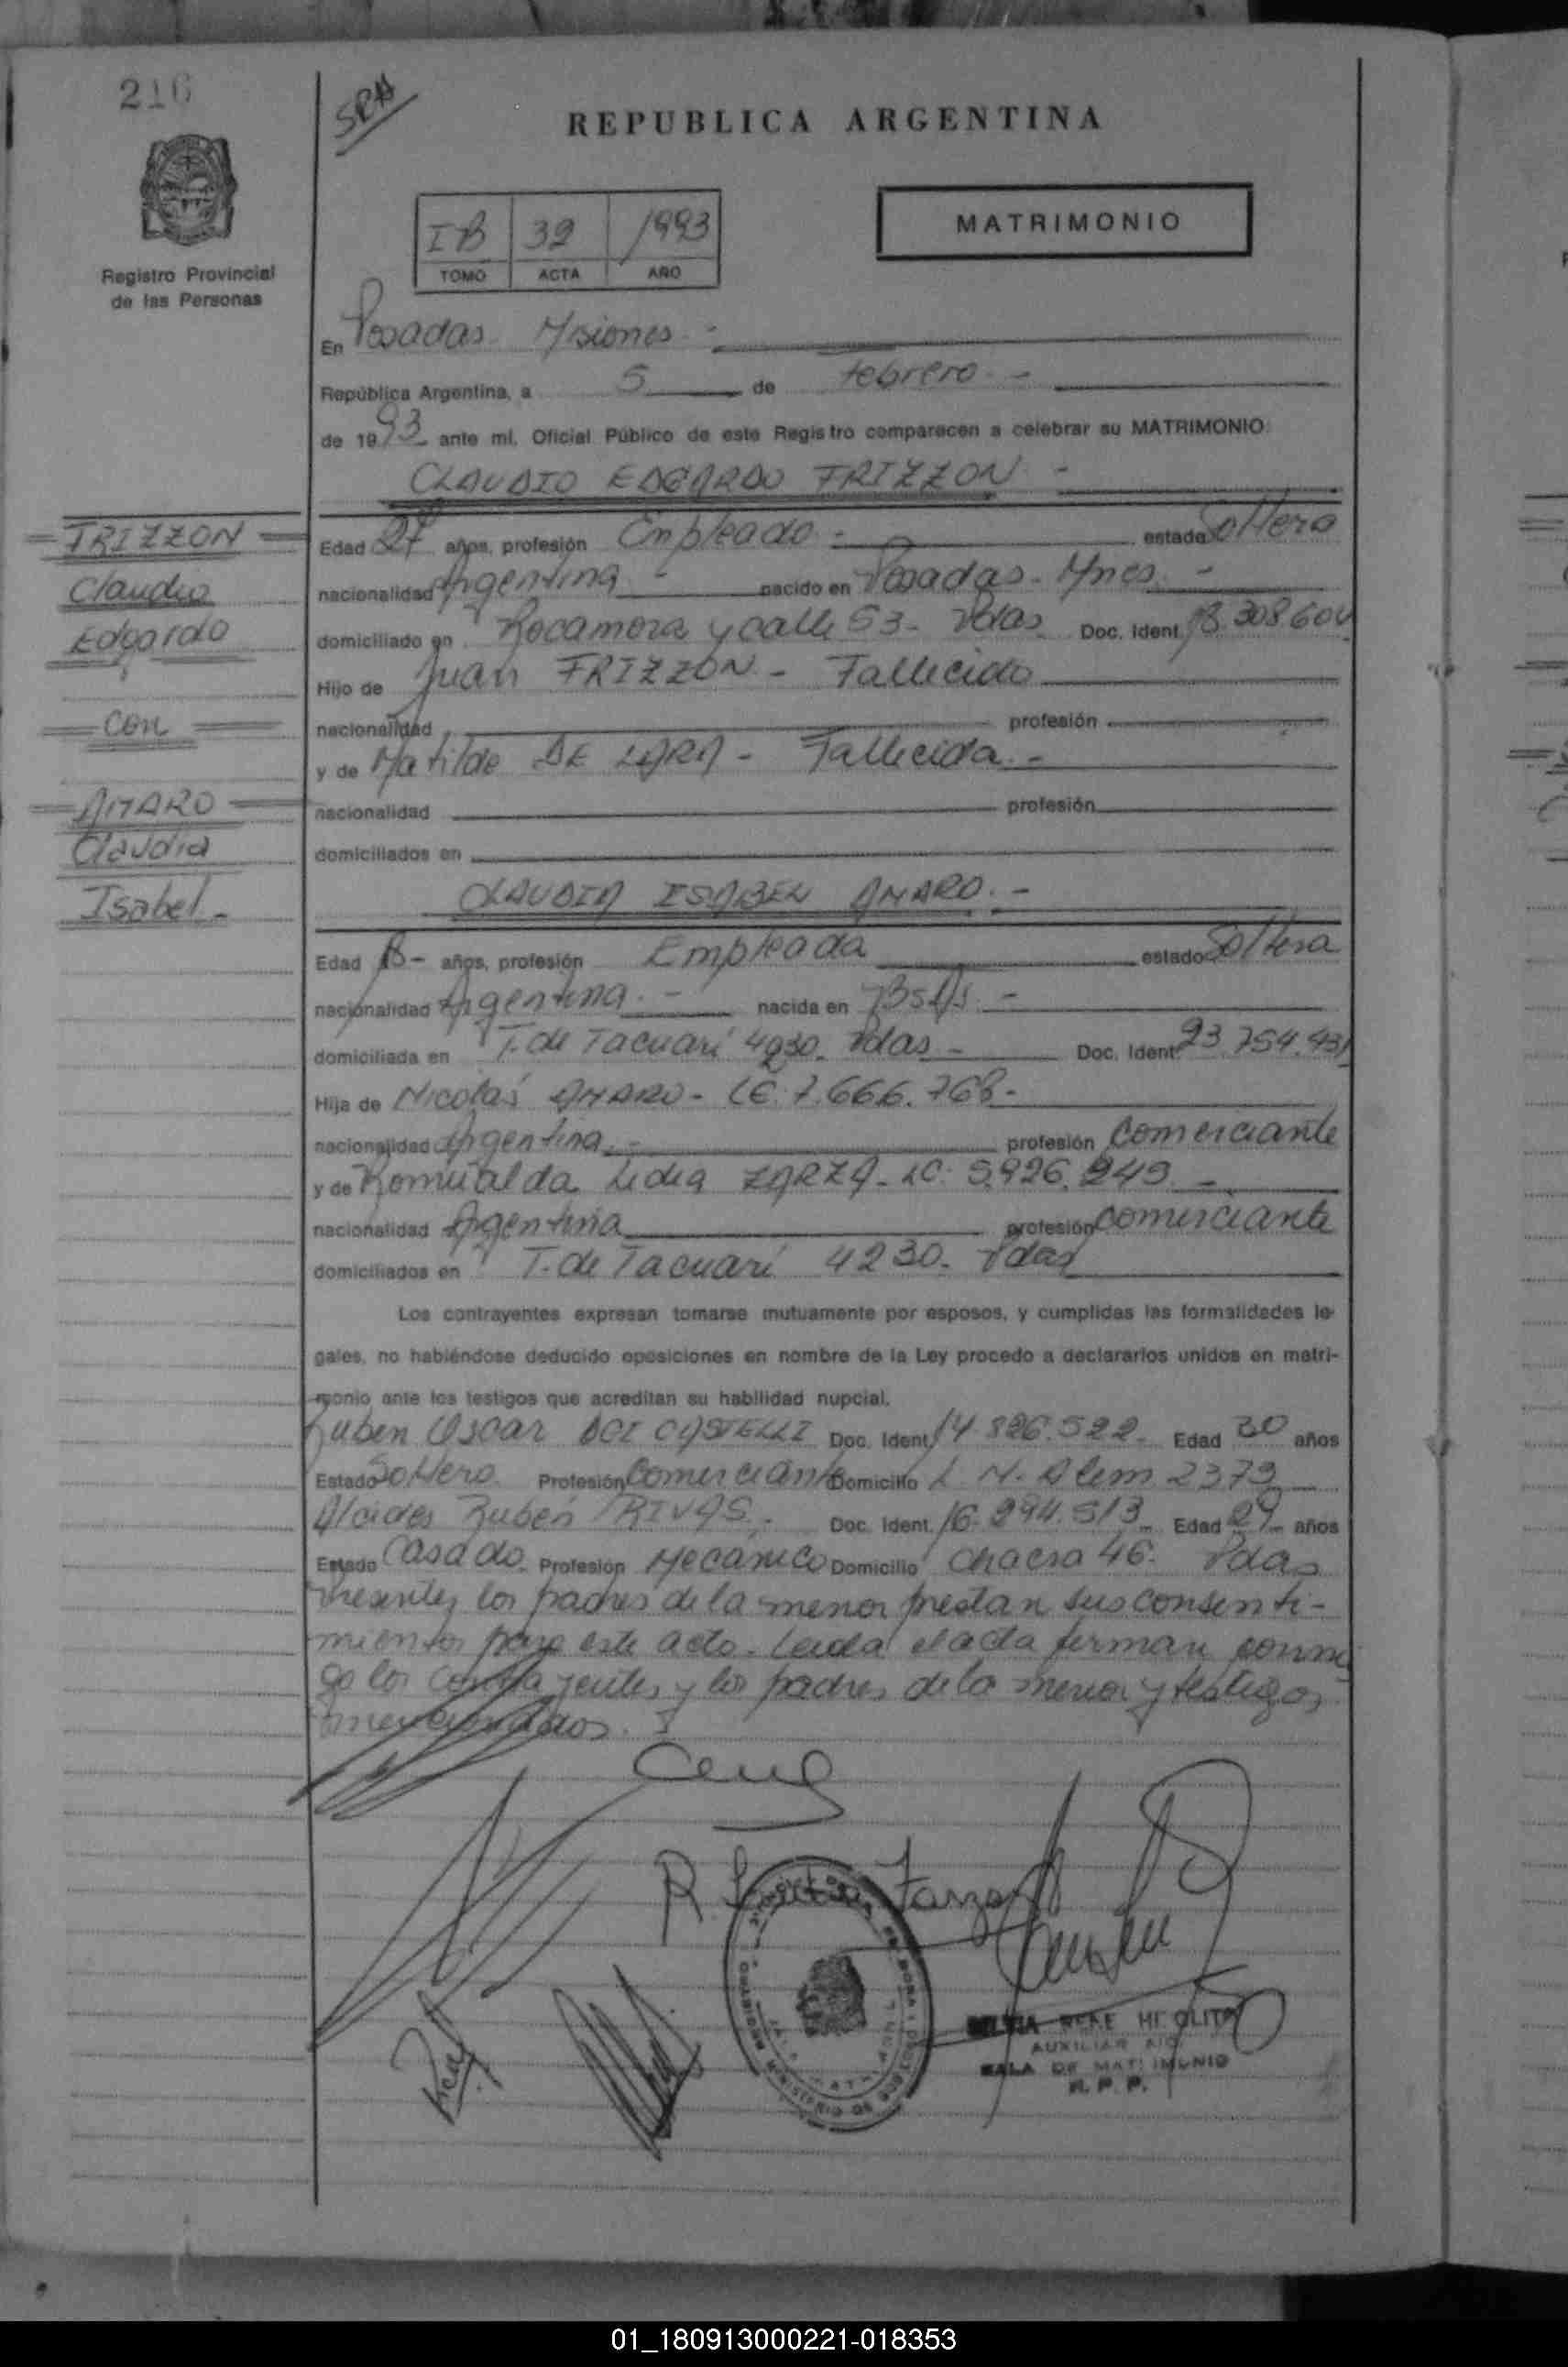 216
SRA
REPUBLICA ARGENTINA
Registro Provincial
de las Personas
IB 39 1993
TOMO ACTA AÑO
MATRIMONIO
En Posadas Msiones -
República Argentina, a 5 de febrero -
de 1993 ante mí, Oficial Público de este Registro comparecen a celebrar su MATRIMONIO:
CLAUDIO EDGARDO FRIZZON -
FRIZZON
Claudio
Edgardo
con
AMARO
Claudia
Isabel -
Edad 27 años, profesión Empleado - estado Soltero
nacionalidad Argentina - nacido en Posadas - Mnes. -
domiciliado en Rocamora y calle 53 - Pdas Doc. Ident. 18.308.604
Hijo de Juan FRIZZON - Fallecido
nacionalidad profesión
y de Matilde DE LARA - Fallecida. -
nacionalidad profesión
domiciliados en
CLAUDIA ISABEL AMARO. -
Edad 18 - años, profesión Empleada estado Soltera
nacionalidad Argentina. - nacida en Bs As -
domiciliada en T. de Tacuarí 4230. Pdas - Doc. Ident. 23.754.431
Hija de Nicolás AMARO - LE. 7.666.768 -
nacionalidad Argentina. - profesión Comerciante
y de Romualda Lidia ZARZA - LC. 5.926.249 -
nacionalidad Argentina profesión comerciante
domiciliados en T. de Tacuarí 4230. Pdas
Los contrayentes expresan tomarse mutuamente por esposos, y cumplidas las formalidades le-
gales, no habiéndose deducido oposiciones en nombre de la Ley procedo a declararlos unidos en matri-
monio ante los testigos que acreditan su habilidad nupcial.
Ruben Oscar DCI CASTELLI Doc. Ident. 14.826.522 - Edad 30 años
Estado Soltero Profesión Comerciante Domicilio L. N. Alem 2379
Alcides Rubén RIVAS. Doc. Ident. 16.294.513 - Edad 29 años
Estado Casado. Profesión Mecánico Domicilio Chacra 46. Pdas
Presentes los padres de la menor prestan sus consenti-
mientos para este acto. Leida el acta firman conmi
go los contrayentes y los padres de la menor y testigos
mencionados.
R. Zarza
AUXILIAR
SALA DE MATRIMONIO
R. P. P.
01_180913000221-018353